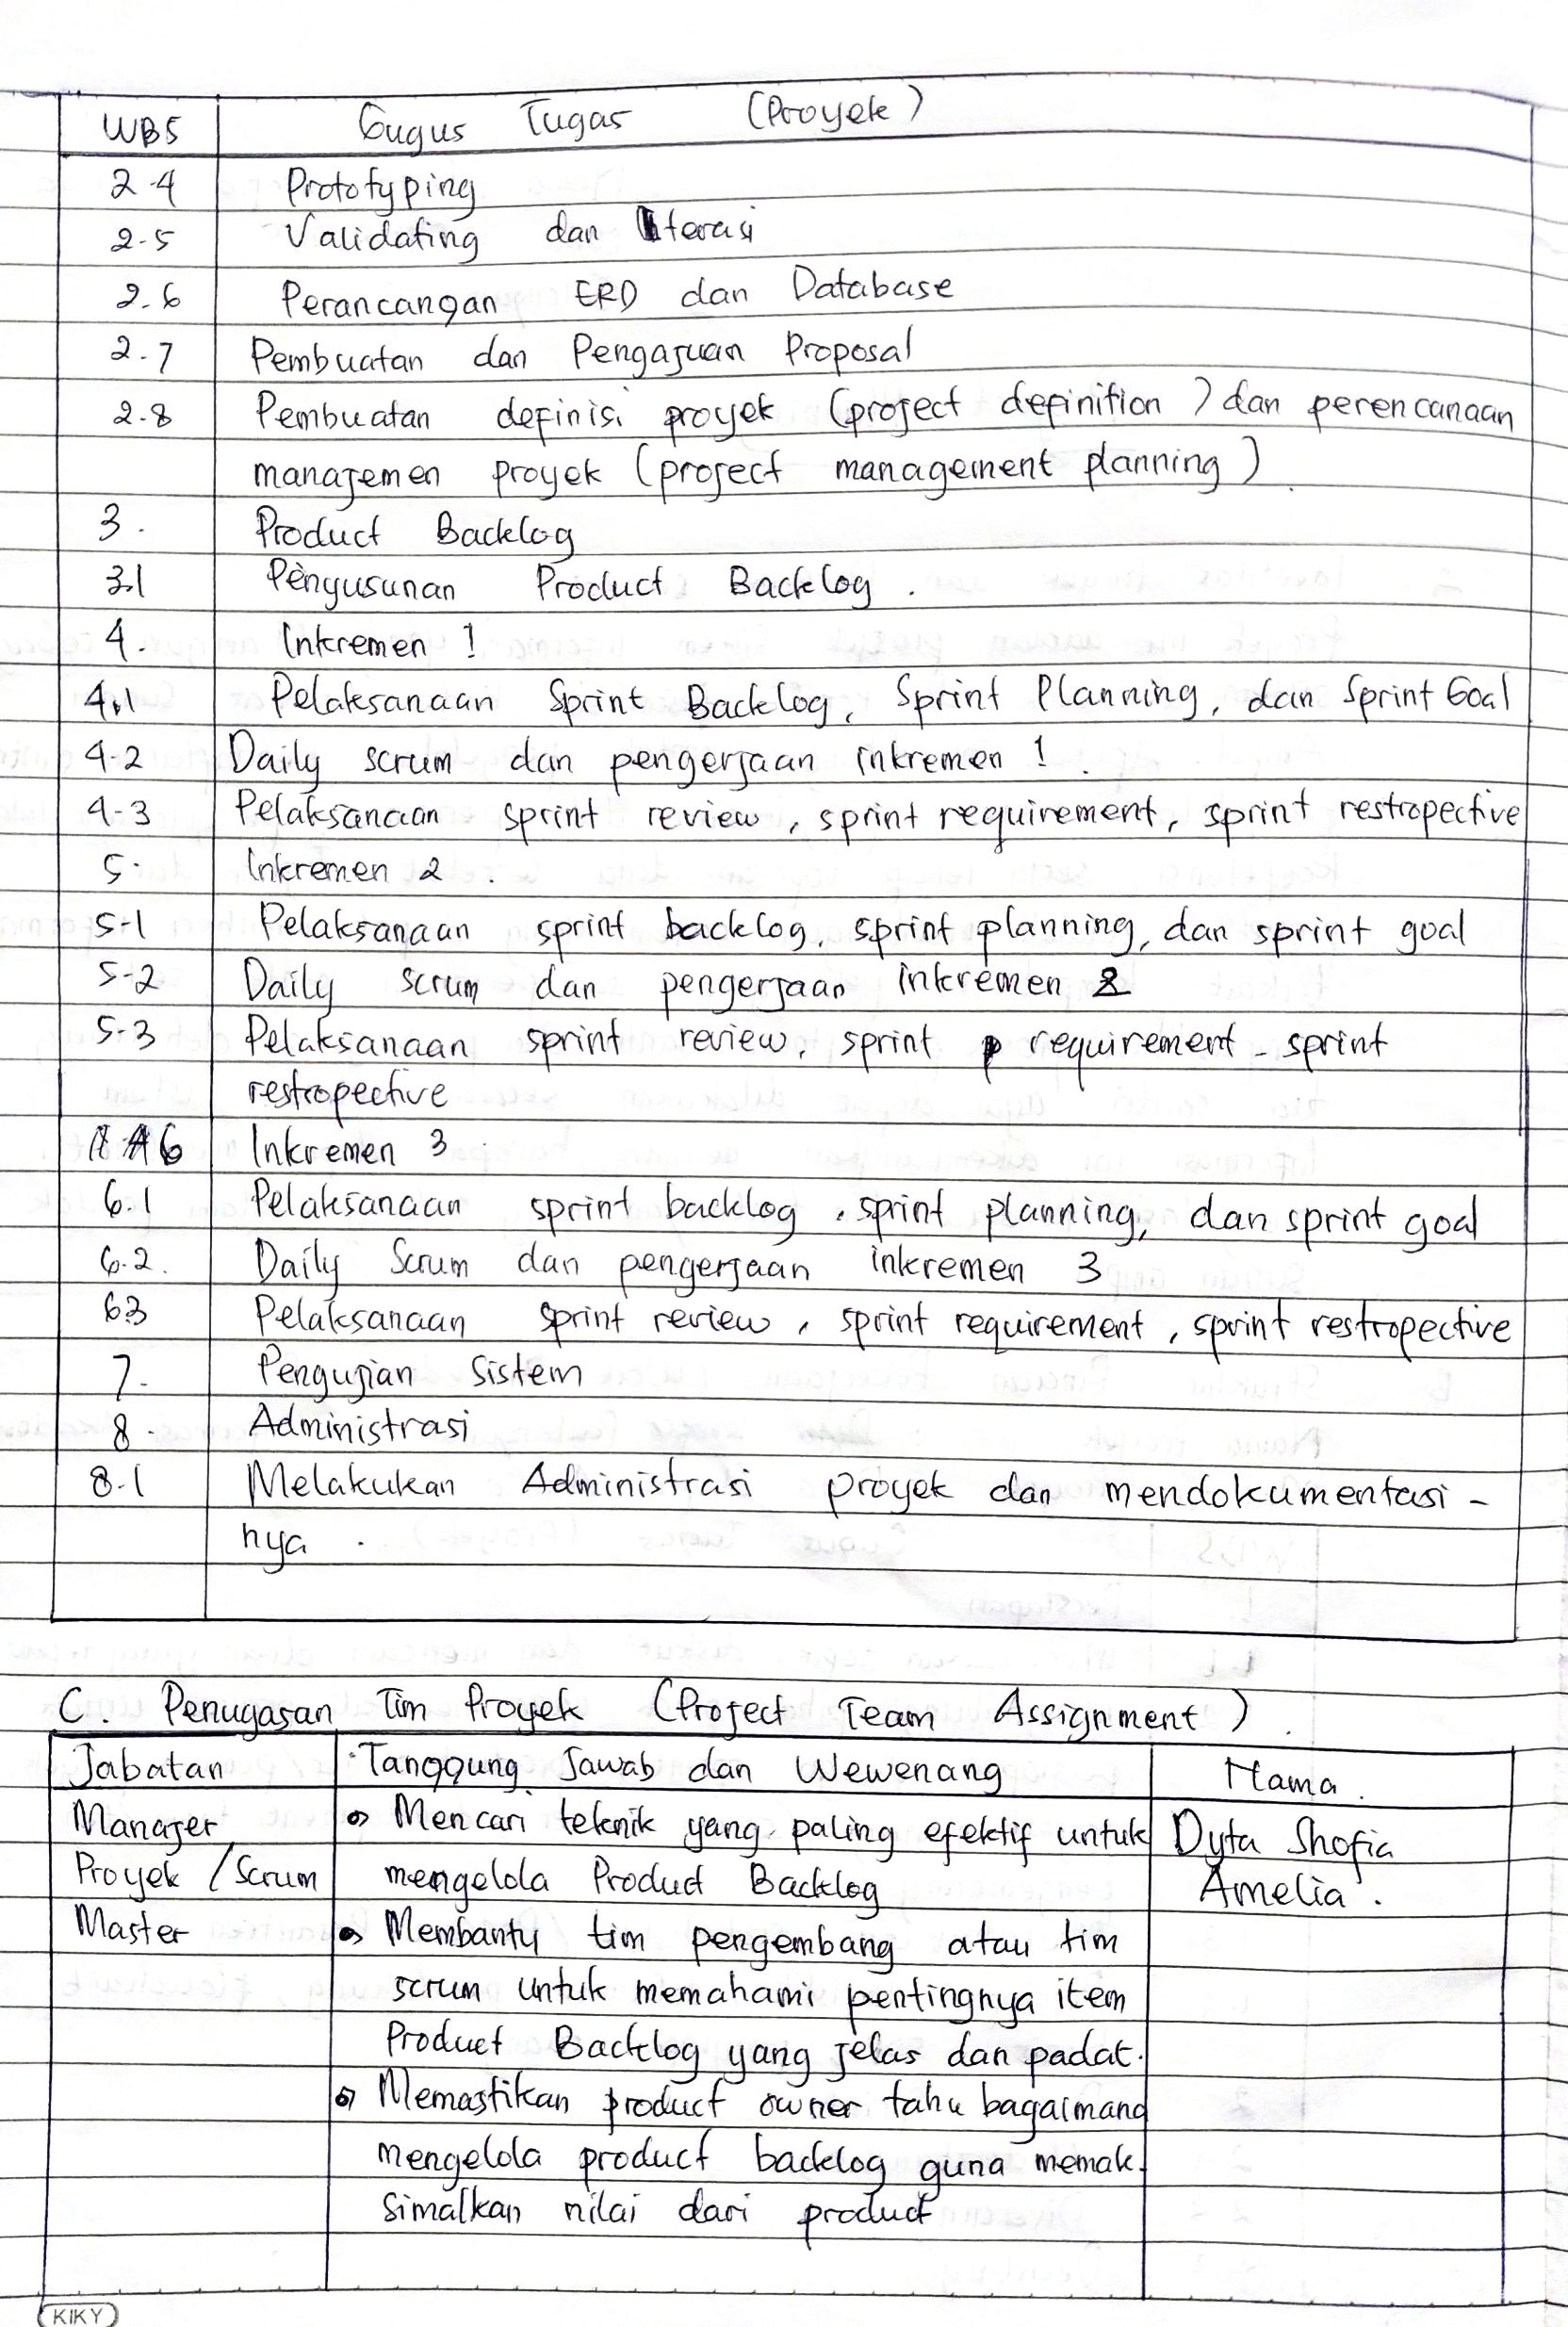 WBS Gugus Tugas (Proyek)
2.4 Prototyping
2.5 Validating dan Iterasi
2.6 Perancangan ERD dan Database
2.7 Pembuatan dan Pengajuan Proposal
2.8 Pembuatan definisi proyek (project definition) dan perencanaan
manajemen proyek (project management planning).
3. Product Backlog
3.1 Penyusunan Product Backlog.
4. Inkremen 1
4.1 Pelaksanaan Sprint Backlog, Sprint Planning, dan Sprint Goal
4.2 Daily scrum dan pengerjaan inkremen 1.
4.3 Pelaksanaan sprint review, sprint requirement, sprint restropective
5. Inkremen 2.
5.1 Pelaksanaan sprint backlog, sprint planning, dan sprint goal
5.2 Daily scrum dan pengerjaan inkremen 2
5.3 Pelaksanaan sprint review, sprint requirement - sprint
restropective
6 Inkremen 3
6.1 Pelaksanaan sprint backlog, sprint planning, dan sprint goal
6.2. Daily Scrum dan pengerjaan inkremen 3
6.3 Pelaksanaan sprint review, sprint requirement, sprint restropective
7. Pengujian Sistem
8. Administrasi
8.1 Melakukan Administrasi proyek dan mendokumentasi-
nya.
C. Penugasan Tim Proyek (Project Team Assignment).
Jabatan Tanggung Jawab dan Wewenang Nama.
Manajer Mencari teknik yang paling efektif untuk Dyta Shofia
Proyek / Scrum mengelola Product Backlog Amelia.
Master Membantu tim pengembang atau tim
scrum untuk memahami pentingnya item
Product Backlog yang jelas dan padat.
Memastikan product owner tahu bagaimana
mengelola product backlog guna memak-
simalkan nilai dari product
KIKY